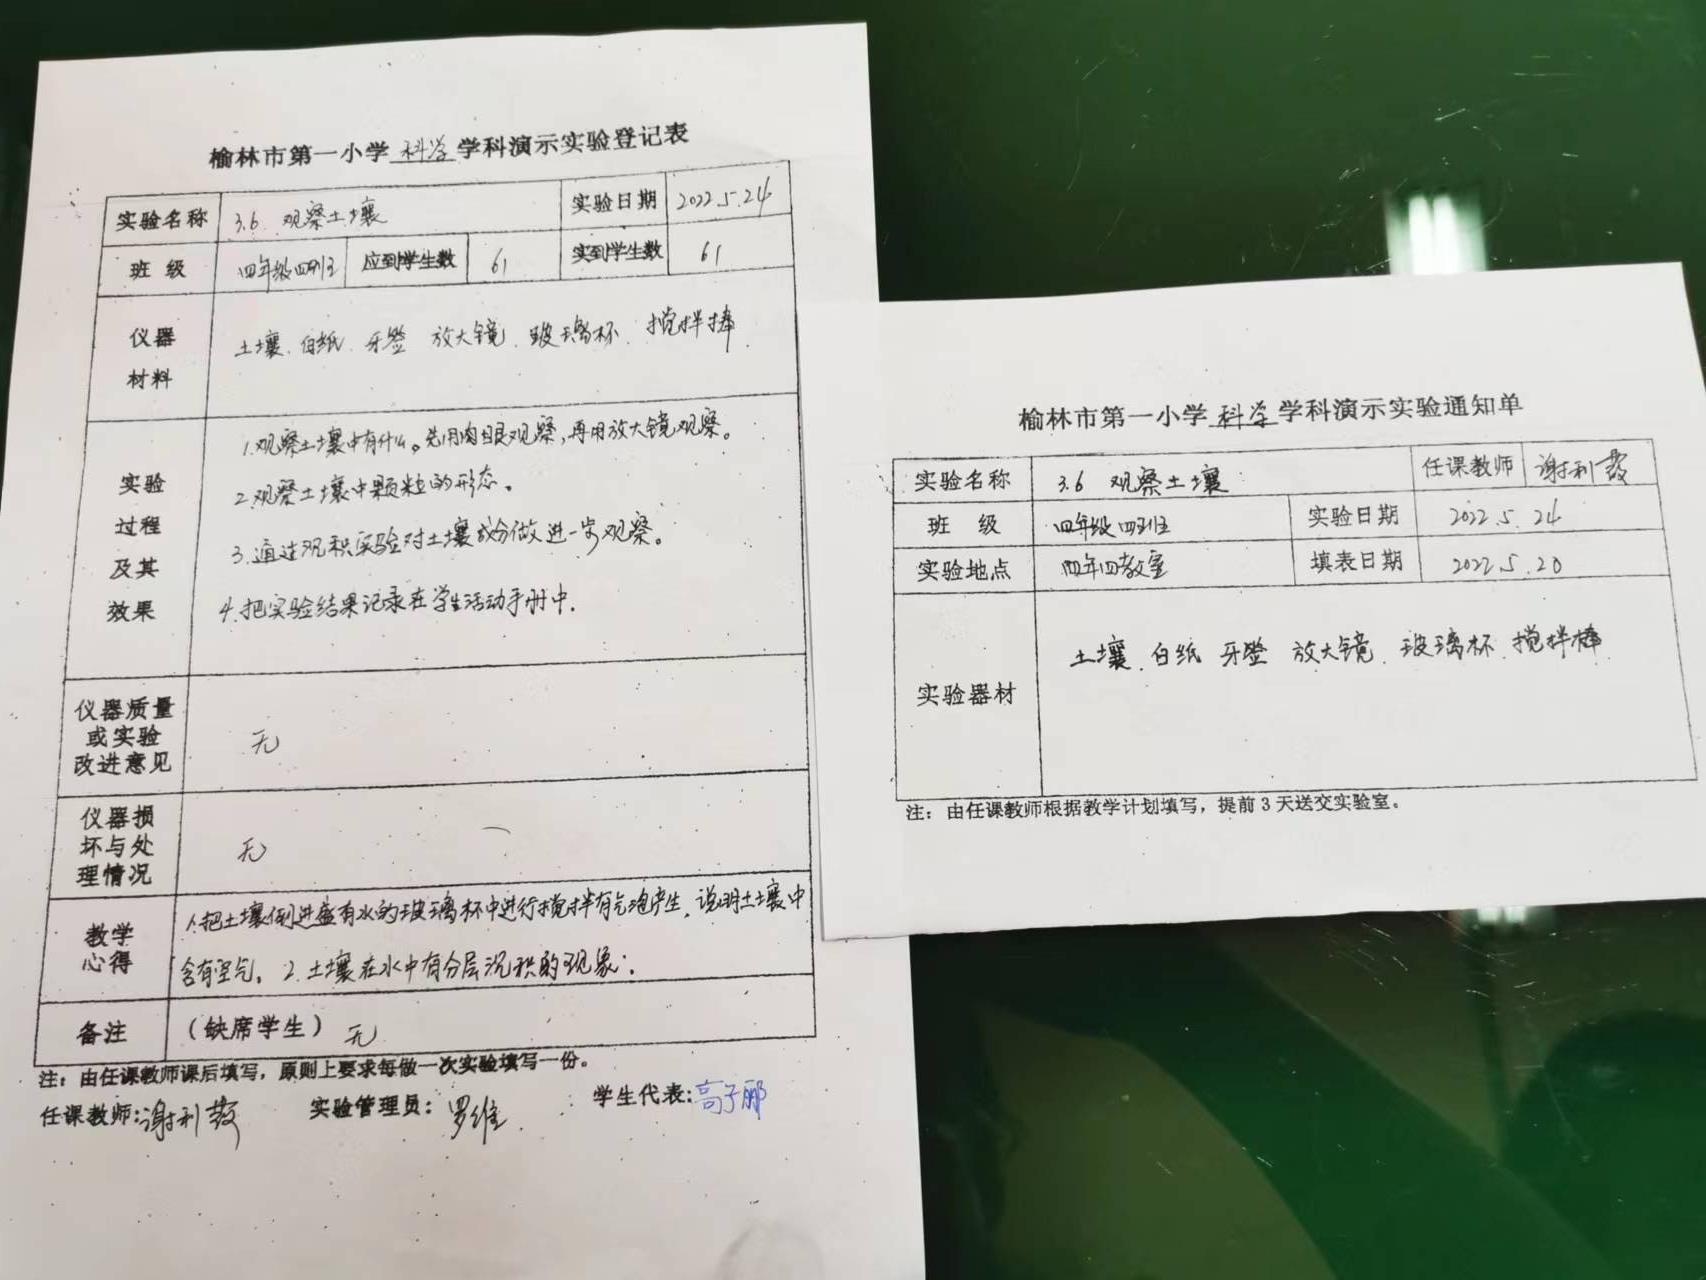 榆林市第一小学 科学 学科演示实验登记表
实验名称 3.6 观察土壤 实验日期 2022.5.24
班 级 四年级四班 应到学生数 61 实到学生数 61
仪器
材料
土壤、白纸、牙签 放大镜、玻璃杯、搅拌棒
实验
过程
及其
效果
1.观察土壤中有什么。先用肉眼观察,再用放大镜观察。
2.观察土壤中颗粒的形态。
3.通过沉积实验对土壤成分做进一步观察。
4.把实验结果记录在学生活动手册中.
仪器质量
或实验
改进意见
无
仪器损
坏与处
理情况
无
教学
心得
1.把土壤倒进盛有水的玻璃杯中进行搅拌有气泡产生,说明土壤中
含有空气。2.土壤在水中有分层沉积的现象.
备注 (缺席学生) 无
注:由任课教师课后填写,原则上要求每做一次实验填写一份。
任课教师:谢利霞 实验管理员:罗维 学生代表:高子郦
榆林市第一小学 科学 学科演示实验通知单
实验名称 3.6 观察土壤 任课教师 谢利霞
班 级 四年级四班 实验日期 2022.5.24
实验地点 四年四教室 填表日期 2022.5.20
实验器材
土壤、白纸 牙签 放大镜、玻璃杯、搅拌棒
注:由任课教师根据教学计划填写,提前3天送交实验室。